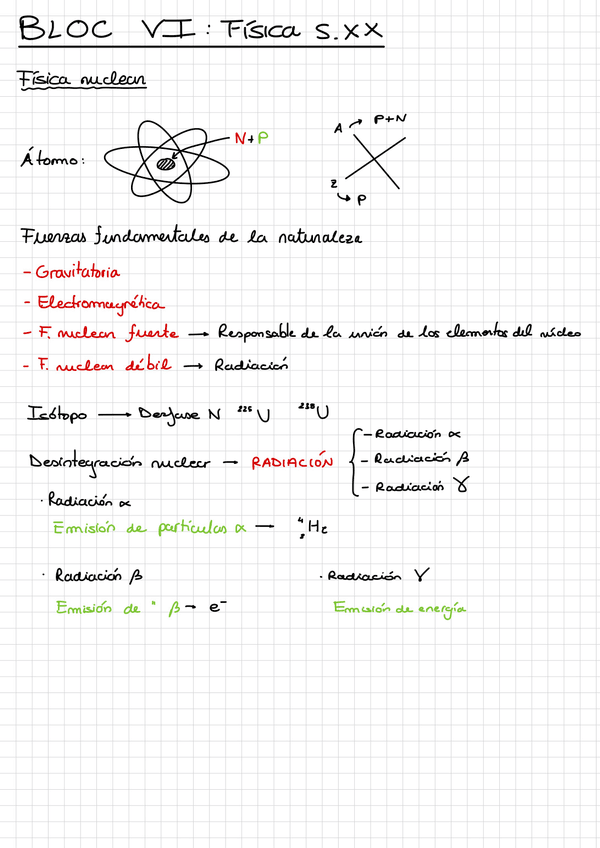 BLOC VI: Física s.XX
Física nuclear
Átomo:
N+P
A → P+N
Z
↳ P
Fuerzas fundamentales de la naturaleza
- Gravitatoria
- Electromagnética
- F. nuclear fuerte → Responsable de la unión de los elementos del núcleo
- F. nuclear débil → Radiación
Isótopo → Desfase N ²²⁵U ²³⁸U
Desintegración nuclear → RADIACIÓN
- Radiación α
- Radiación β
- Radiación γ
· Radiación α
Emisión de partículas α — ⁴₂He
· Radiación β
Emisión de " β → e⁻
· Radiación γ
Emisión de energía